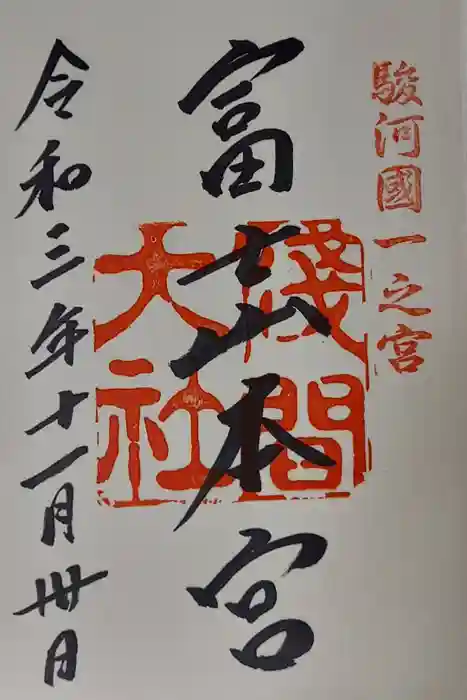 駿河國一之宮
富士山本宮
淺間
大社
令和三年十一月卅日